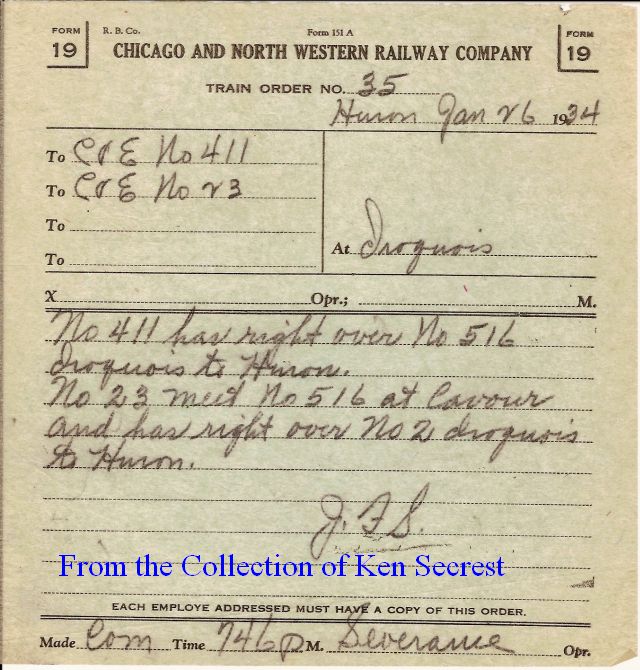 FORM 19
R. B. Co.
Form 151 A
FORM 19
CHICAGO AND NORTH WESTERN RAILWAY COMPANY
TRAIN ORDER NO. 35
Huron Jan 26 1934
To C&E No 411
To C&E No 23
To
To
At Iroquois
X Opr.; M.
No 411 has right over No 516
Iroquois to Huron.
No 23 meet No 516 at Cavour
and has right over No 2 Iroquois
to Huron.
J.F.S.
From the Collection of Ken Secrest
EACH EMPLOYE ADDRESSED MUST HAVE A COPY OF THIS ORDER.
Made Com Time 746 P M. Severance Opr.